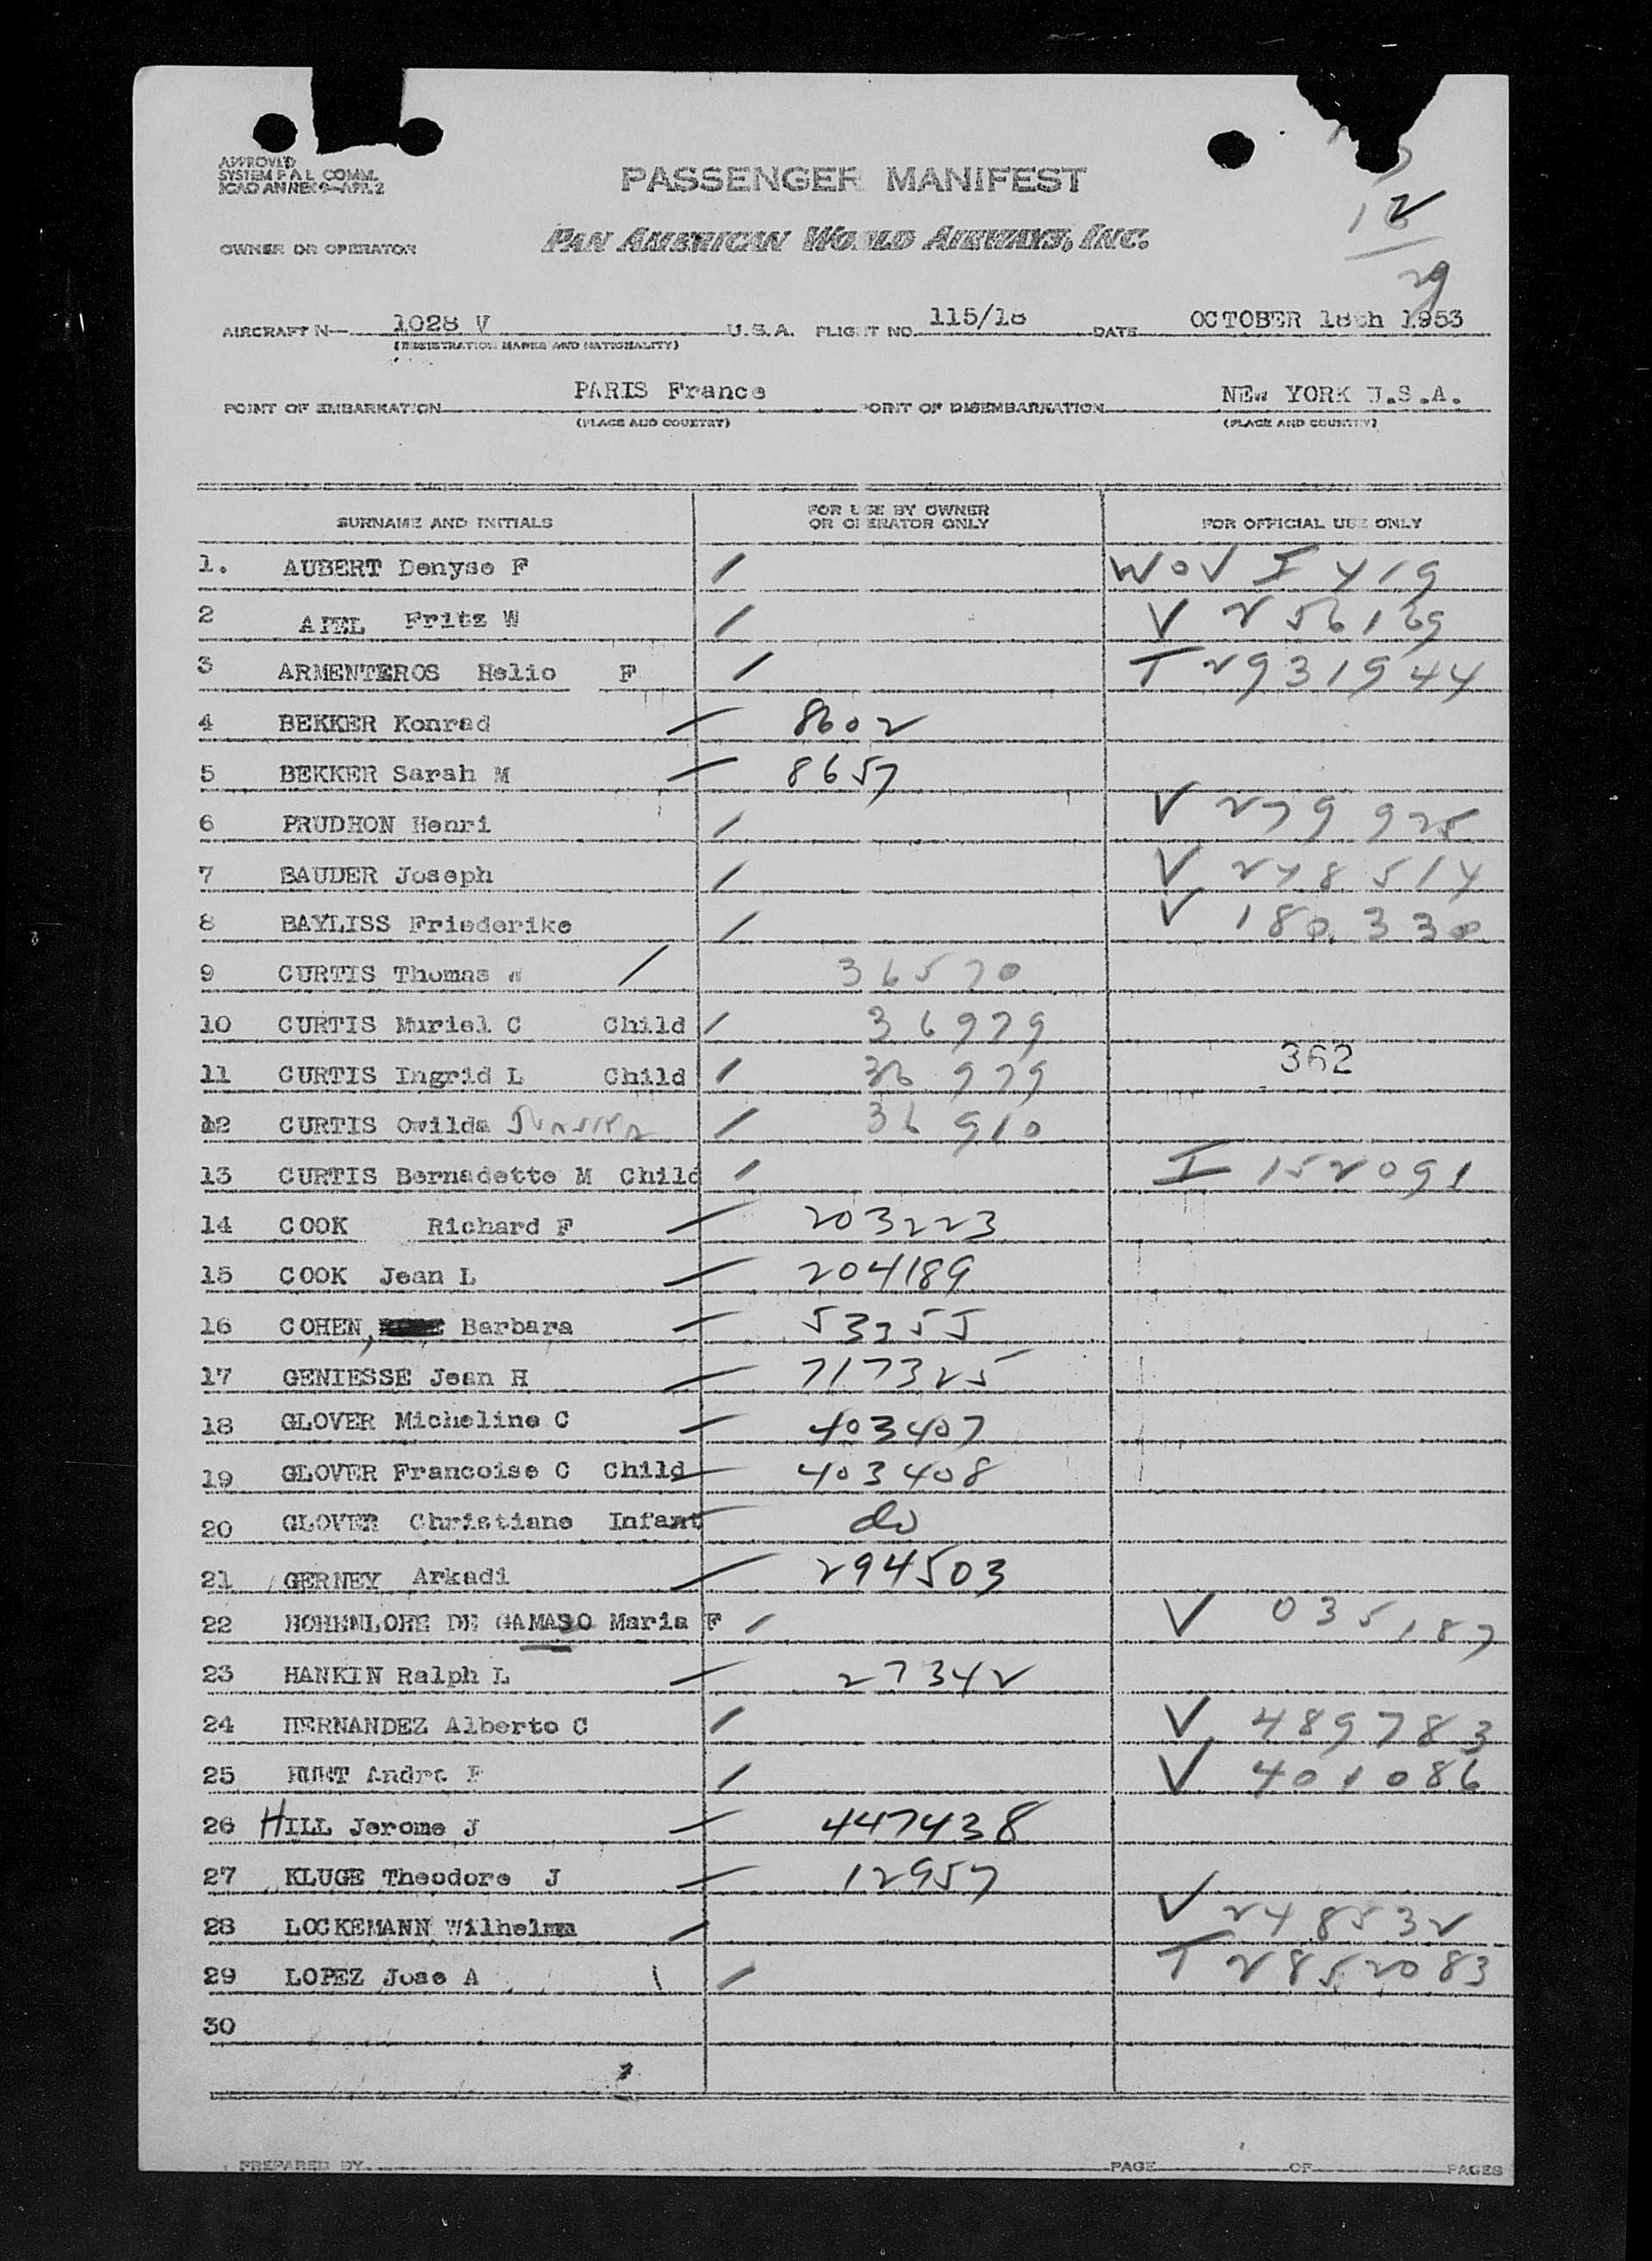 APPROVED
SYSTEM F A L COMM.
ICAO ANNEX 9—APP. 2
PASSENGER MANIFEST
12
29
OWNER OR OPERATOR PAN AMERICAN WORLD AIRWAYS, INC.
AIRCRAFT N— 1028 V U.S.A. FLIGHT NO. 115/18 DATE OCTOBER 18th 1953
(REGISTRATION MARKS AND NATIONALITY)
POINT OF EMBARKATION PARIS France POINT OF DISEMBARKATION NEW YORK U.S.A.
(PLACE AND COUNTRY) (PLACE AND COUNTRY)
SURNAME AND INITIALS FOR USE BY OWNER OR OPERATOR ONLY FOR OFFICIAL USE ONLY
1. AUBERT Denyse F / WOV I 419
2 Fritz W / V 256169
3 ARMENTEROS Helio F / T 2931944
4 BEKKER Konrad — 8602
5 BEKKER Sarah M — 8657
6 PRUDHON Henri / V 279925
7 BAUDER Joseph / V 248514
8 BAYLISS Friederike / V 180330
9 CURTIS Thomas W / 36570
10 CURTIS Muriel C Child / 36979
11 CURTIS Ingrid L Child / 36979 362
12 CURTIS Owilda / 36910
13 CURTIS Bernadette M Child / I 152091
14 COOK Richard F — 203223
15 COOK Jean L — 204189
16 COHEN, Barbara — 53355
17 GENIESSE Jean H — 717325
18 GLOVER Micheline C — 403407
19 GLOVER Francoise C Child — 403408
20 GLOVER Christiane Infant — do
21 GERNEY Arkadi — 294503
22 HOHENLOHE DE GAMASO Maria F / V 035187
23 HANKIN Ralph L — 27342
24 HERNANDEZ Alberto C / V 489783
25 Andre F / V 401086
26 HILL Jerome J — 447438
27 KLUGE Theodore J — 12957
28 LOCKEMANN Wilhelm / V 248532
29 LOPEZ Jose A / T 2852083
30
PREPARED BY PAGE OF PAGES